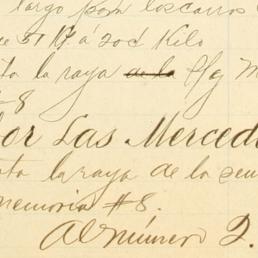 largo para los carros
51 K á 20¢ Kilo
la raya de la Hg M
8
or Las Merced
ta la raya de la sem
memoria #8.
Al número 2.